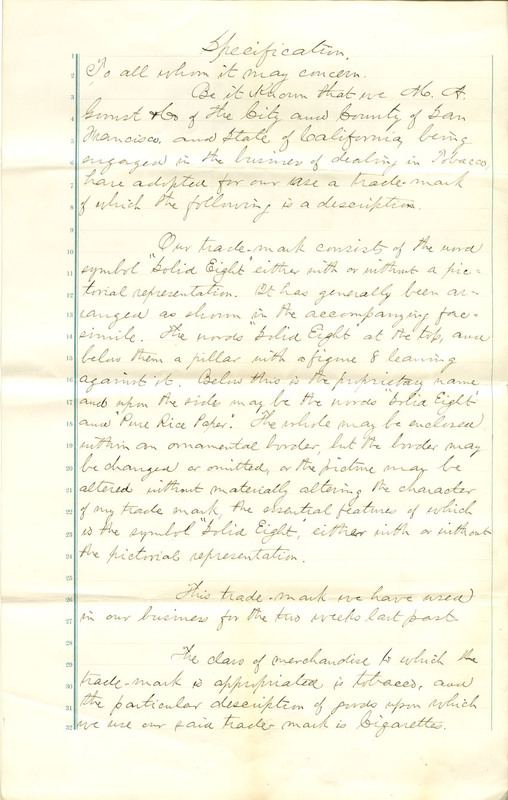 Specification.
1
2 To all whom it may concern.
3 Be it Known that we M. A.
4 Gunst & Co of the City and County of San
5 Francisco, and State of California, being
6 engaged in the business of dealing in Tobacco,
7 have adopted for our use a trade-mark
8 of which the following is a description.
9
10 Our trade-mark consists of the word
11 symbol "Solid Eight" either with or without a pic-
12 torial representation. It has generally been ar-
13 ranged as shown in the accompanying fac-
14 simile. The words "Solid Eight" at the top, and
15 below them a pillar with a figure 8 leaning
16 against it. Below this is the proprietary name
17 and upon the side may be the words "Solid Eight"
18 and "Pure Rice Paper". The whole may be enclosed
19 within an ornamental border, but the border may
20 be changed or omitted, or the picture may be
21 altered without materially altering the character
22 of my trade mark, the essential features of which
23 is the symbol "Solid Eight", either with or without
24 the pictorial representation.
25
26 This trade-mark we have used
27 in our business for the two weeks last past.
28
29 The class of merchandise to which the
30 trade-mark is appropriated is tobacco, and
31 the particular description of goods upon which
32 we use our said trade-mark is Cigarettes.